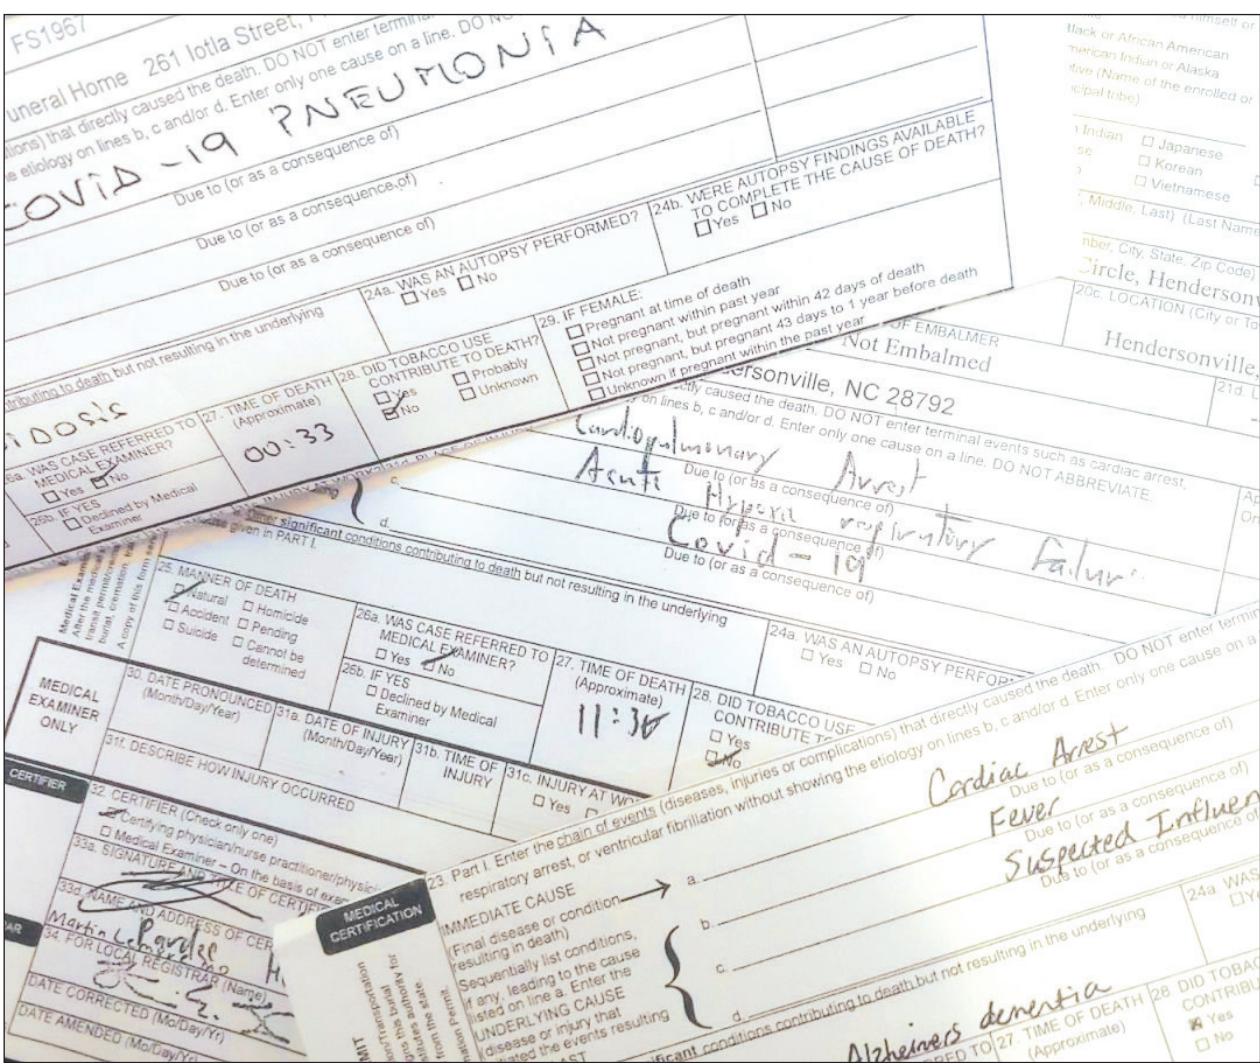 FS1967
uneral Home 261 Iotla Street,
tions) that directly caused the death. DO NOT enter terminal
e etiology on lines b, c and/or d. Enter only one cause on a line. DO NO
COVID-19 PNEUMONIA
Due to (or as a consequence of)
Due to (or as a consequence of)
Due to (or as a consequence of)
24a. WAS AN AUTOPSY PERFORMED?
Yes No
24b. WERE AUTOPSY FINDINGS AVAILABLE
TO COMPLETE THE CAUSE OF DEATH?
Yes No
ntributing to death but not resulting in the underlying
idosis
26a. WAS CASE REFERRED TO
MEDICAL EXAMINER?
Yes No
26b. IF YES
Declined by Medical
Examiner
27. TIME OF DEATH
(Approximate)
00:33
28. DID TOBACCO USE
CONTRIBUTE TO DEATH?
Yes Probably
No Unknown
29. IF FEMALE:
Pregnant at time of death
Not pregnant within past year
Not pregnant, but pregnant within 42 days of death
Not pregnant, but pregnant 43 days to 1 year before death
Unknown if pregnant within the past year
himself or
lack or African American
merican Indian or Alaska
tive (Name of the enrolled or
cipal tribe)
Indian Japanese
Korean
Vietnamese
Middle, Last) (Last Name
mber, City, State, Zip Code)
Circle, Henderson
20c. LOCATION (City or T
Hendersonville,
21d.
OF EMBALMER
Not Embalmed
ersonville, NC 28792
ctly caused the death. DO NOT enter terminal events such as cardiac arrest,
y on lines b, c and/or d. Enter only one cause on a line. DO NOT ABBREVIATE.
Cardiopulmonary Arrest
Due to (or as a consequence of)
Acute Hypoxi respiratory Failur
Due to (or as a consequence of)
Covid-19
Due to (or as a consequence of)
c.
d.
enter significant conditions contributing to death but not resulting in the underlying
given in PART I.
25. MANNER OF DEATH
Natural Homicide
Accident Pending
Suicide Cannot be
determined
26a. WAS CASE REFERRED TO
MEDICAL EXAMINER?
Yes No
26b. IF YES
Declined by Medical
Examiner
27. TIME OF DEATH
(Approximate)
24a. WAS AN AUTOPSY PERFOR
Yes No
28. DID TOBACCO USE
CONTRIBUTE TO
Yes
No
Medical Exam
After the medical
transit permit/cre
burial, cremation,
A copy of this form
MEDICAL
EXAMINER
ONLY
30. DATE PRONOUNCED
(Month/Day/Year)
31a. DATE OF INJURY
(Month/Day/Year)
31b. TIME OF
INJURY
31c. INJURY AT WO
Yes
31f. DESCRIBE HOW INJURY OCCURRED
CERTIFIER
32. CERTIFIER (Check only one)
Certifying physician/nurse practitioner/physici
Medical Examiner – On the basis of exam
33a. SIGNATURE AND TITLE OF CERTIF
33d. NAME AND ADDRESS OF CER
Martin
Pardee
34. FOR LOCAL REGISTRAR (Name)
DATE CORRECTED (Mo/Day/Yr)
DATE AMENDED (Mo/Day/Yr)
MEDICAL
CERTIFICATION
23. Part I. Enter the chain of events (diseases, injuries or complications) that directly caused the death. DO NOT enter termin
respiratory arrest, or ventricular fibrillation without showing the etiology on lines b, c and/or d. Enter only one cause on a
IMMEDIATE CAUSE
(Final disease or condition
resulting in death)
a. Cardiac Arrest
Due to (or as a consequence of)
Sequentially list conditions,
if any, leading to the cause
listed on line a. Enter the
UNDERLYING CAUSE
(disease or injury that
tiated the events resulting
b. Fever
Due to (or as a consequence of)
c. Suspected Influen
Due to (or as a consequence o
d.
ificant conditions contributing to death but not resulting in the underlying
Alzheimers dementia
24a. WAS
27. TIME OF DEATH
(Approximate)
28. DID TOBAC
CONTRIBU
Yes
No